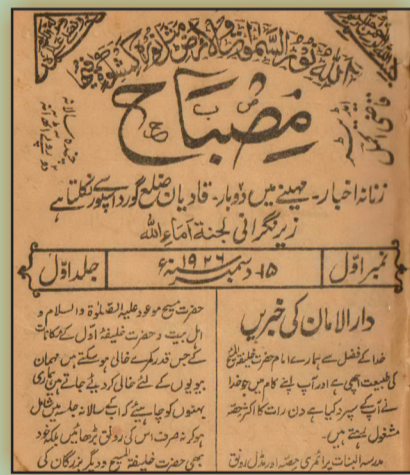 اللہ نور السموات والارض مثل نورہ کمشکوۃ فیہا
مصباح
ایڈیٹر
قاضی اکمل
چندہ سالانہ
دو روپے آٹھ آنہ
زنانہ اخبار - مہینے میں دوبار - قادیان ضلع گورداسپور سے نکلتا ہے
زیر نگرانی لجنۃ اماء اللہ
نمبر اوّل
۱۵ دسمبر سنہ ۱۹۲۶ء
جلد اوّل
دارالامان کی خبریں
خدا کے فضل سے ہمارے امام حضرت خلیفۃ المسیح
کی طبیعت اچھی ہے اور آپ اپنے کام میں جو خدا
نے آپ کے سپرد کیا ہے دن رات کا اکثر حصّہ
مشغول رہتے ہیں۔
مدرسۃ البنات پرائمری حصّہ اور مڈل رونق
حضرت مسیح موعود علیہ الصلوٰۃ والسلام و
اہل بیت و حضرت خلیفۂ اوّل کے مکانات
کے جس قدر کمرے خالی ہو سکتے ہیں مہمان
بیویوں کے لئے خالی کر دیئے جاتے ہیں ہماری
بہنوں کو چاہیئے کہ اب کے سالانہ جلسہ میں شامل
ہو کر نہ صرف اس کی رونق بڑھائیں بلکہ خود
بھی حضرت خلیفۃ المسیح و دیگر بزرگان کی